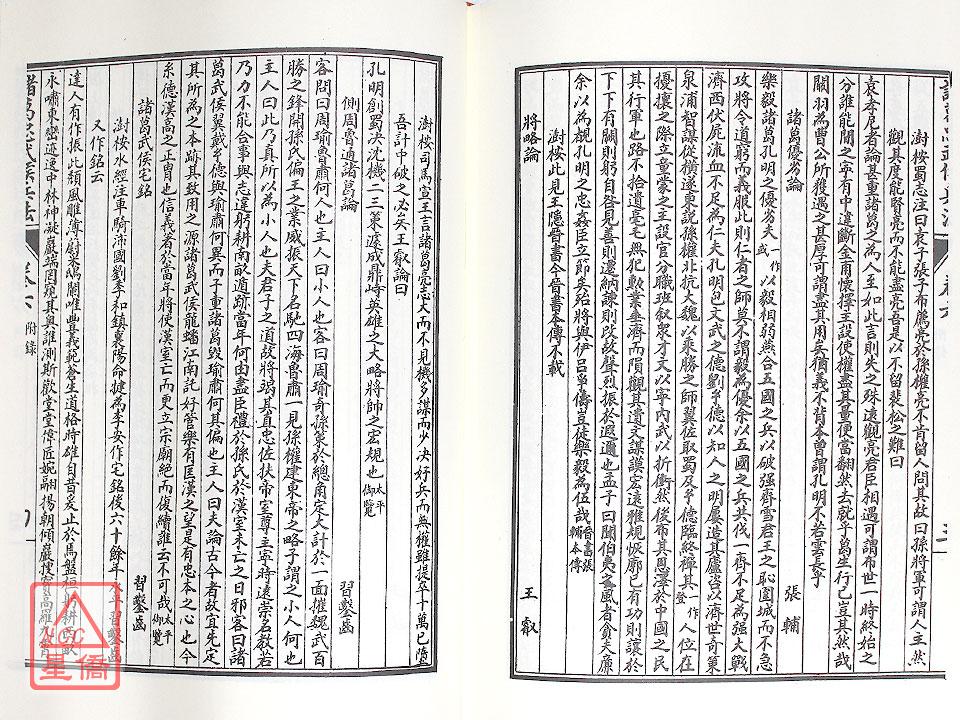 澍按蜀志注曰袁孝子張子布薦亮於孫權亮不肯留人問其故曰孫將軍可謂人主然
觀其度能賢亮而不能盡亮吾是以不留裴松之難曰
袁孝尼著論甚重諸葛之為人至如此言則失之殊遠觀亮君臣相遇可謂希世一時終始之
分誰能間之寧有中違斷金甫懷擇主設使權盡其量便當翻然去就乎葛生行己豈其然哉
關羽為曹公所獲遇之甚厚可謂盡其用矣猶義不背本曾謂孔明不若雲長乎
諸葛優劣論 張輔
樂毅諸葛孔明之優劣夫一作或以毅相弱燕合五國之兵以破強齊雪君王之恥圍城而不急
攻將令道窮而義服此則仁者之師莫不謂毅為優余以五國之兵共伐一齊不足為强大戰
濟西伏屍流血不足為仁夫孔明包文武之德劉玄德以知人之明屢造其廬咨以濟世奇策
泉涌智謀從橫遂東說孫權北抗大魏以乘勝之師翼佐取蜀及玄德臨終禪其一作登人位在
擾攘之際立童蒙之主設官分職班叙眾才文以寧內武以折衝然後布其恩澤於中國之民
其行軍也路不拾遺毫毛無犯勳業垂濟而隕觀其遺文謀謨宏遠雅規恢廓己有功則讓於
下下有闕則躬自咎見善則遷納諫則改故聲烈振於遐邇也孟子曰聞伯夷之風者貪夫廉
余以為覩孔明之忠姦臣立節矣殆將與伊呂爭儔豈徒樂毅為伍哉晉書張輔本傳
澍按此見王隱晉書今晉書本傳不載
將略論 王叡
澍按司馬宣王言諸葛亮志大而不見機多謀而少決好兵而無權雖提卒十萬已墮
吾計中破之必矣王叡論曰
孔明創蜀決沈機二三策遂成鼎峙英雄之大略將帥之宏規也太平御覽
側周魯通諸葛論 習鑿齒
客問曰周瑜魯肅何人也主人曰小人也客曰周瑜奇孫策於總角定大計於一面摧魏武百
勝之鋒開孫氏偏王之業威振天下名馳四海魯肅一見孫權建東帝之略子謂之小人何也
主人曰此乃真所以為小人也夫君子之道故將竭其直忠佐扶帝室尊主寧時遠崇名教若
乃力不能合事與志違躬耕南畝遁跡當年何由盡臣禮於孫氏於漢室未亡之日邪客曰諸
葛武侯翼戴玄德與瑜肅何異而子重諸葛毀瑜肅何其偏也主人曰夫論古今者故宜先定
其所為之本跡其致用之源諸葛武侯龍蟠江南託好管樂有匡漢之望是有忠本之心也今
玄德漢高之正冑也信義著於當年將使漢室亡而更立宗廟絕而復續誰云不可哉太平御覽
諸葛武侯宅銘 習鑿齒
澍按水經注車騎沛國劉季和鎮襄陽命犍為李安作宅銘後六十餘年永平習鑿齒
又作銘云
達人有作振此頹風雕薄蔚采鴟闌唯豐義範蒼生道格時雄自昔爰止於焉盤桓躬耕西畝
永嘯東巒迹逸中林神凝巖端罔窺其奧誰測斯歡堂堂偉匠婉翮揚朝傾巖搜寶高羅九霄
卷六 附錄
星僑